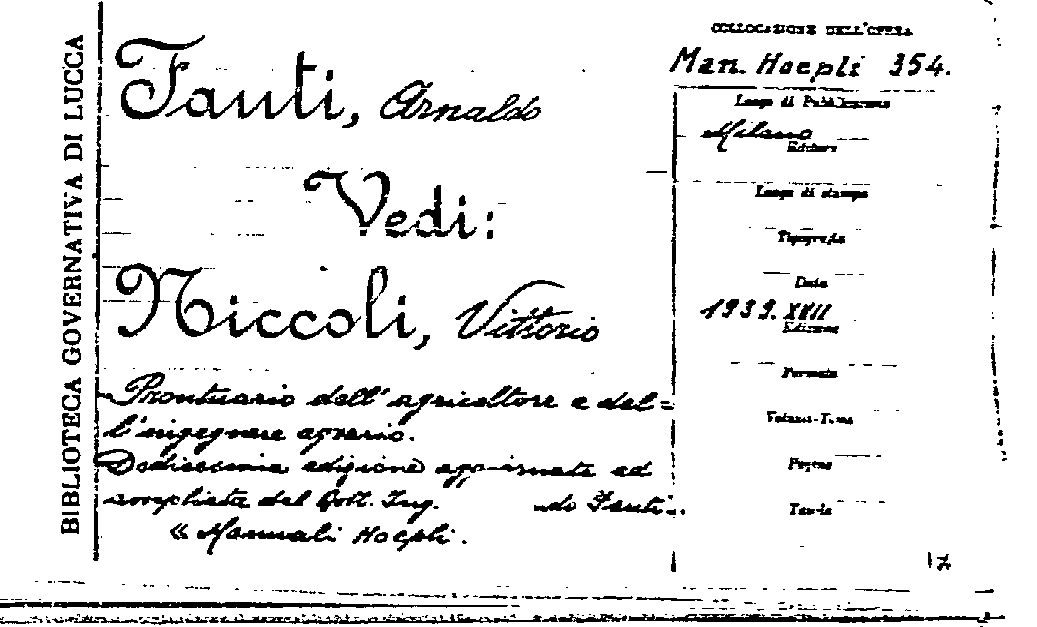 BIBLIOTECA GOVERNATIVA DI LUCCA
Fanti, Arnaldo
Vedi:
Niccoli, Vittorio
Prontuario dell'agricoltore e del=
l'ingegnere agrario.
Dodicesima edizione aggiornata ed
ampliata dal Dott. Ing. do Fanti.
« Manuali Hoepli.
COLLOCAZIONE DELL'OPERA
Man. Hoepli 354.
Luogo di Pubblicazione
Milano
Editore
Luogo di stampa
Tipografia
Data
1939. XVII
Edizione
Formato
Volumi-Tomi
Pagine
Tavole